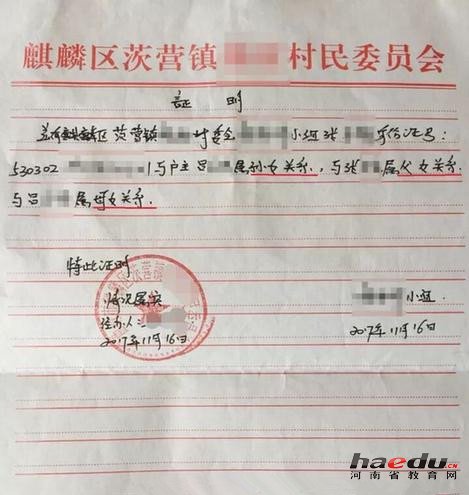 麒麟区茨营镇 村民委员会
证明
兹有麒麟区茨营镇 村委会 小组张 身份证号:
530302 与户主吕 属孙女关系,与张 属父女关系
与吕 属母女关系
特此证明
情况属实 小组
经办人:
2017年11月16日 2017年11月16日
区茨营镇
haedu.cn
河南省教育网